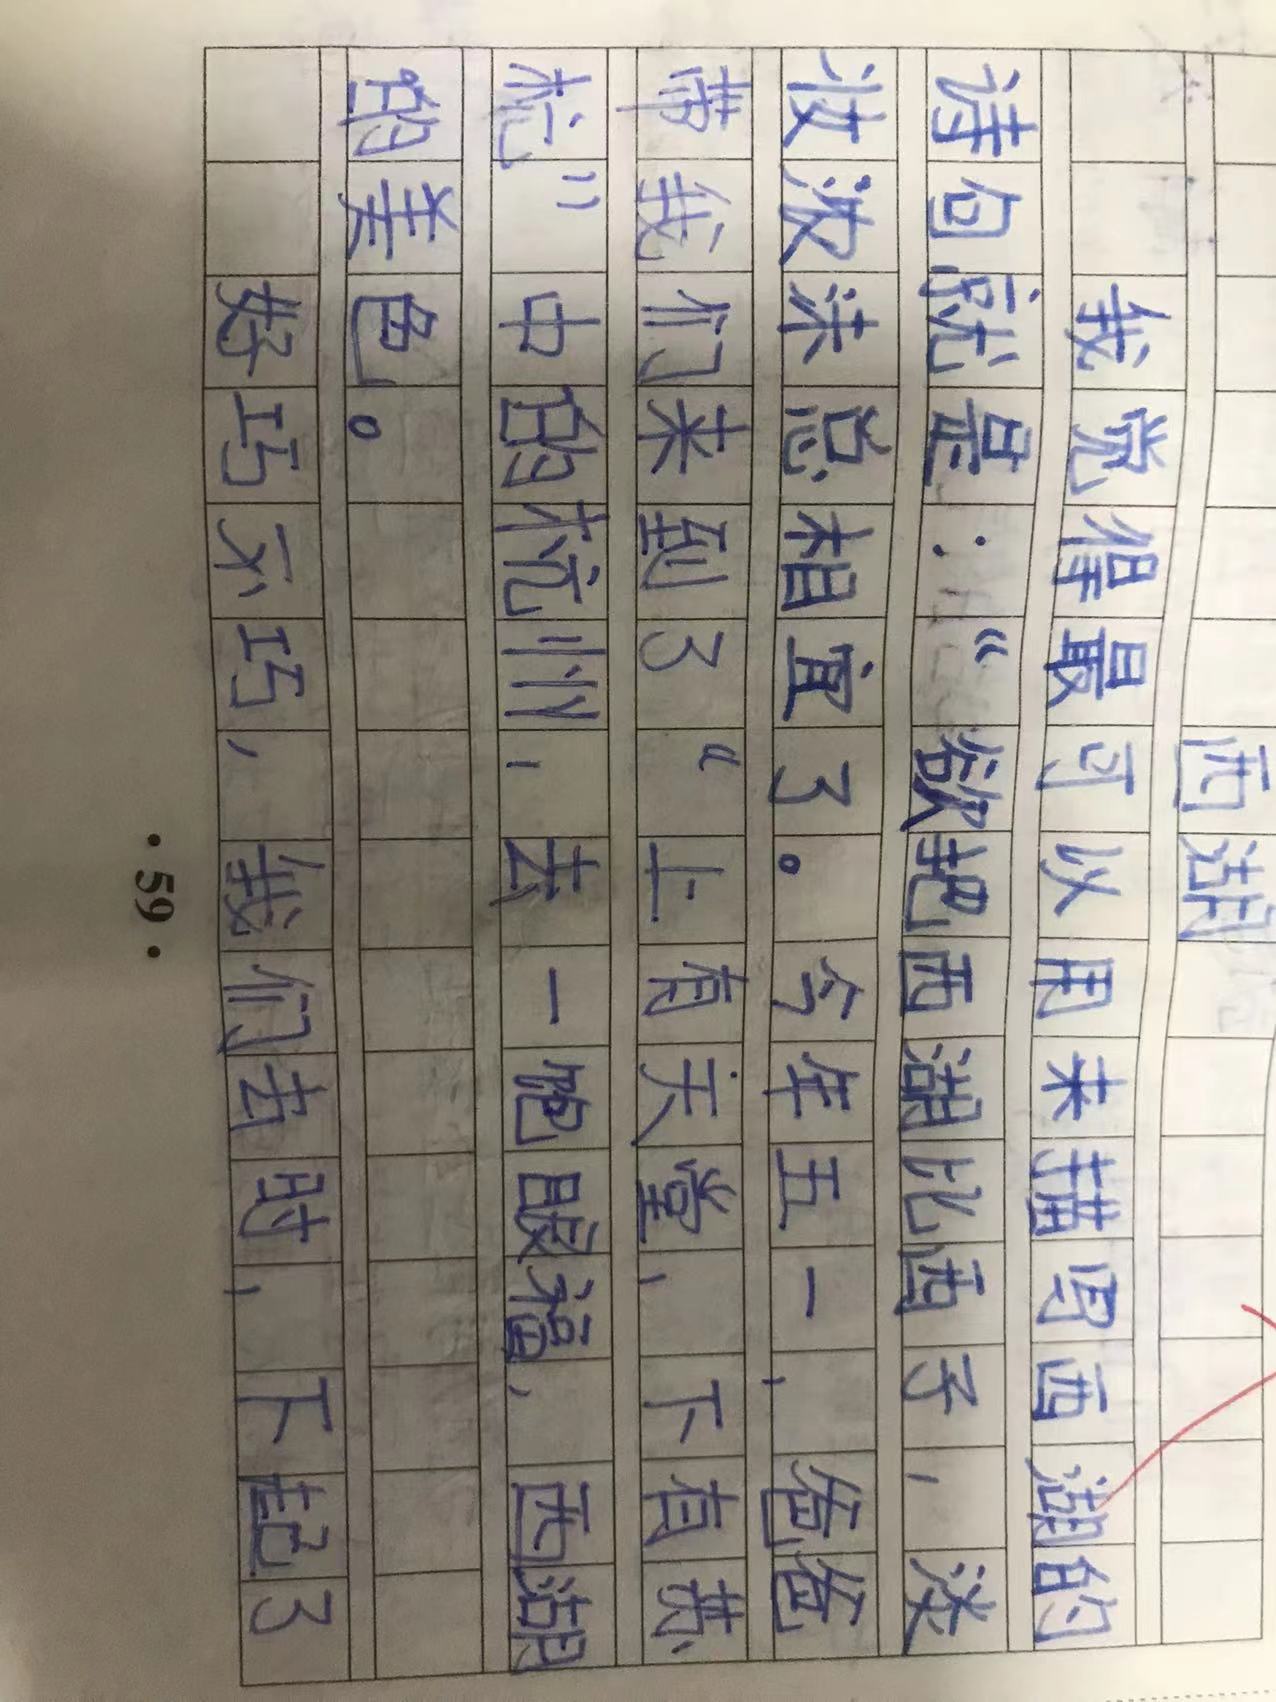 西湖
我觉得最可以用来描写西湖的
诗句就是:“欲把西湖比西子,淡
妆浓沫总相宜了。今年五一,爸爸
带我们来到了“上有天堂,下有苏
杭”中的杭州,去一饱眼福,西湖
的美色。
好巧不巧,我们去时,下起了
·59·